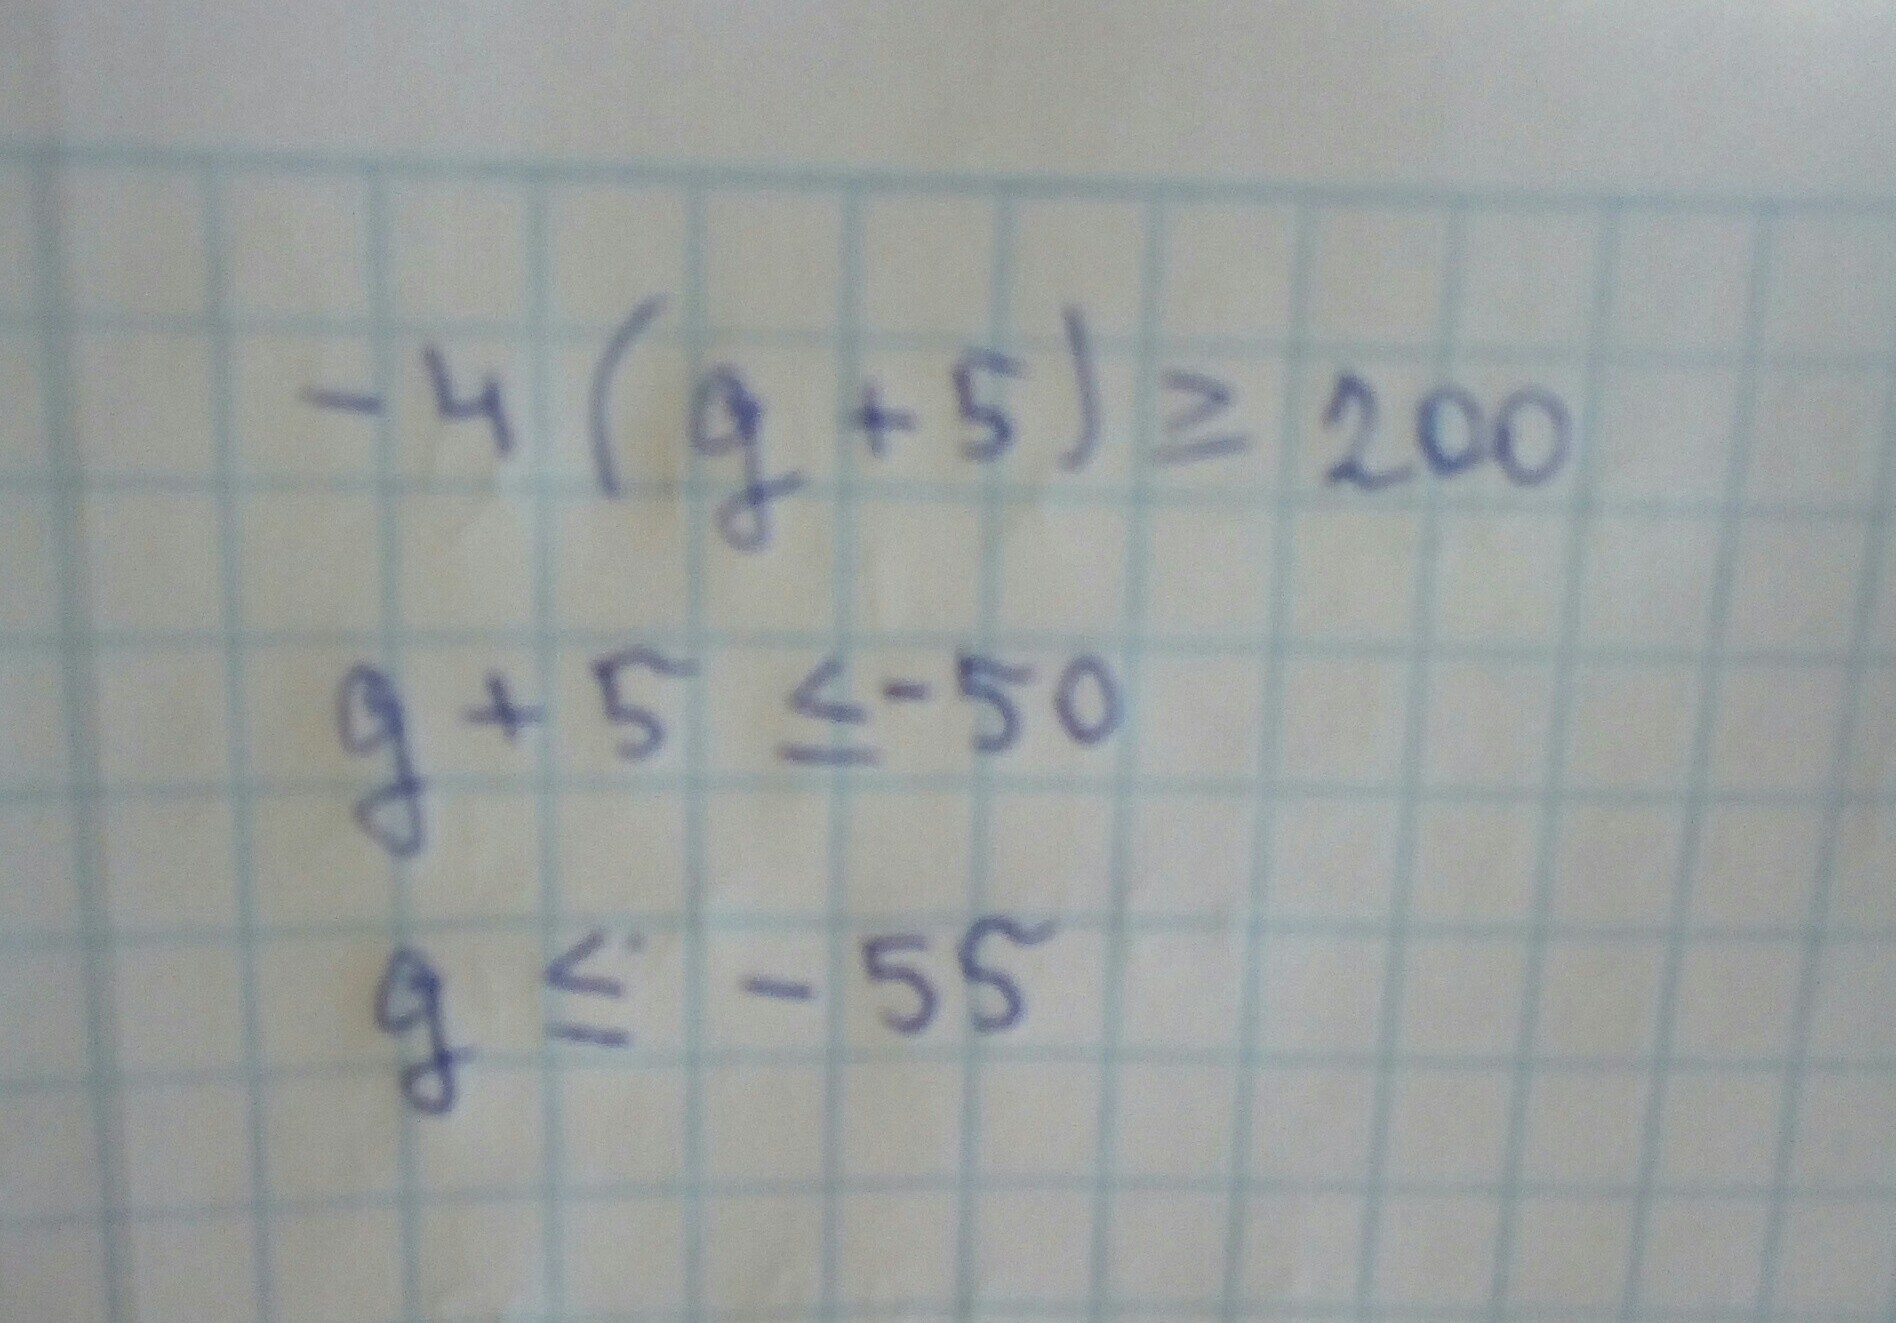 -4 (g + 5) ≥ 200
g + 5 ≤ -50
g ≤ - 55